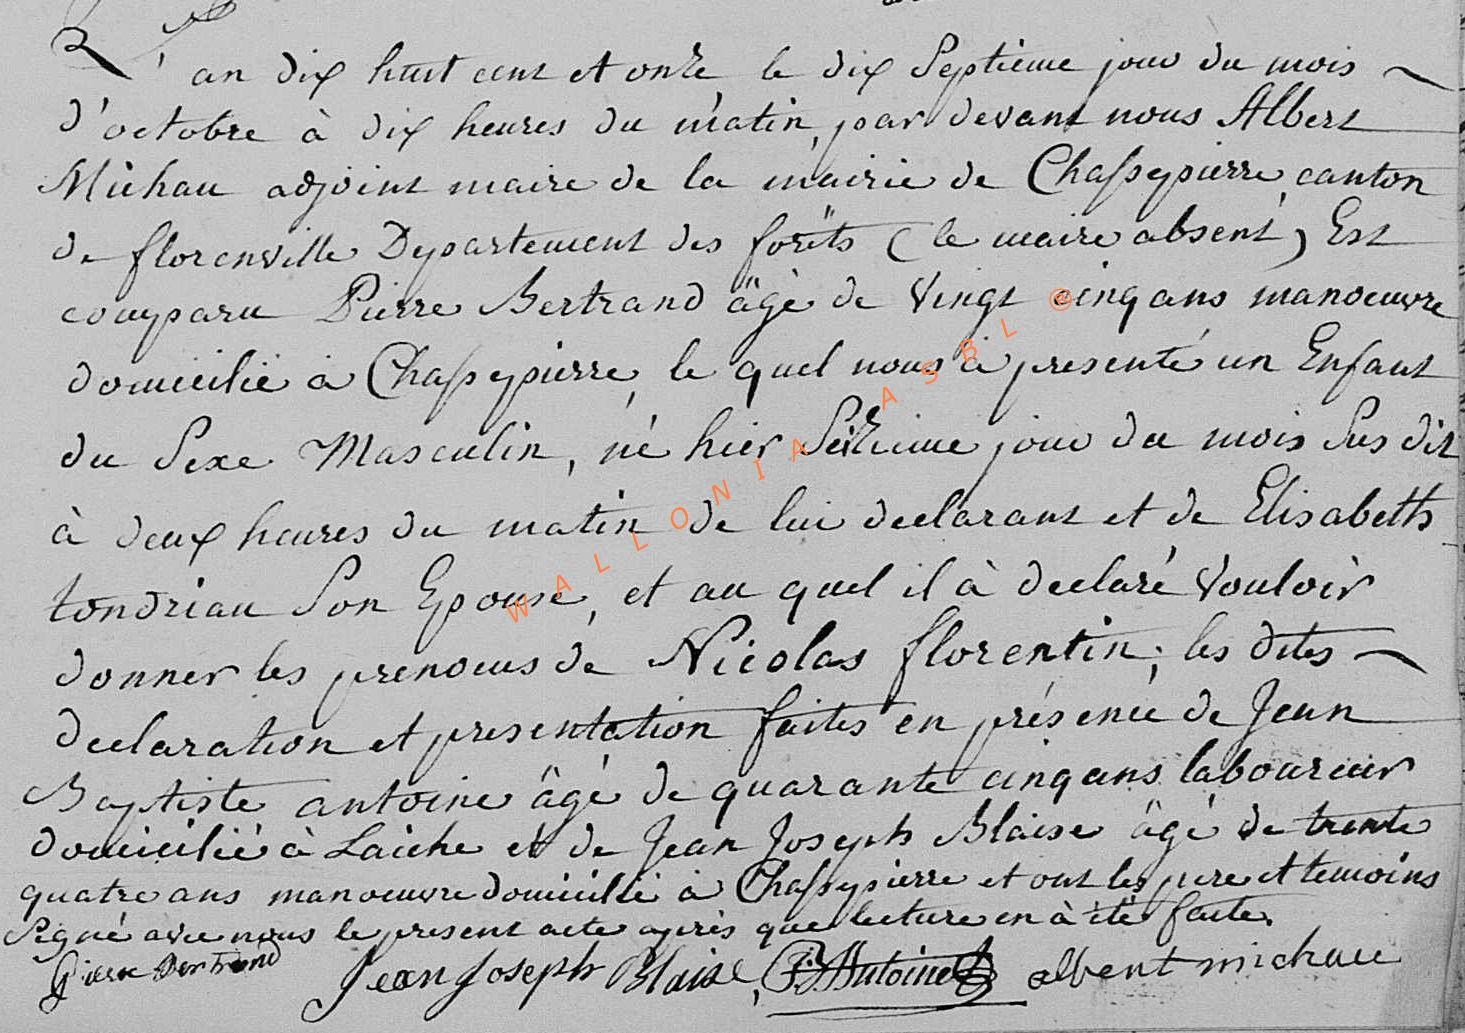 L'an dix huit cent et onze le dix Septieme jour du mois
d'octobre à dix heures du matin, par devant nous Albert
Michau adjoint maire de la mairie de Chassepierre, canton
de florenville Departement des forêts (le maire absent) Est
comparu Pierre Bertrand âgé de Vingt cinq ans manoeuvre
domicilié à Chassepierre, le quel nous à presenté un Enfant
du Sexe Masculin, né hier Seizieme jour du mois Sus dit
à deux heures du matin de lui declarant et de Elisabeth
tondriau Son Epouse, et au quel il à declaré Vouloir
donner les prenoms de Nicolas florentin; les dites
declaration et presentation faites en présence de Jean
Baptiste antoine âgé de quarante cinq ans laboureur
domicilié à Laiche et de Jean Joseph Blaise âgé de trente
quatre ans manoeuvre domicilié à Chassepierre et ont les pere et temoins
Signé avec nous le present acte après que lecture en à été faite.
Pierre Bertrand Jean Joseph Blaise, JB Antoine albert michau
WALLONIA ASBL @